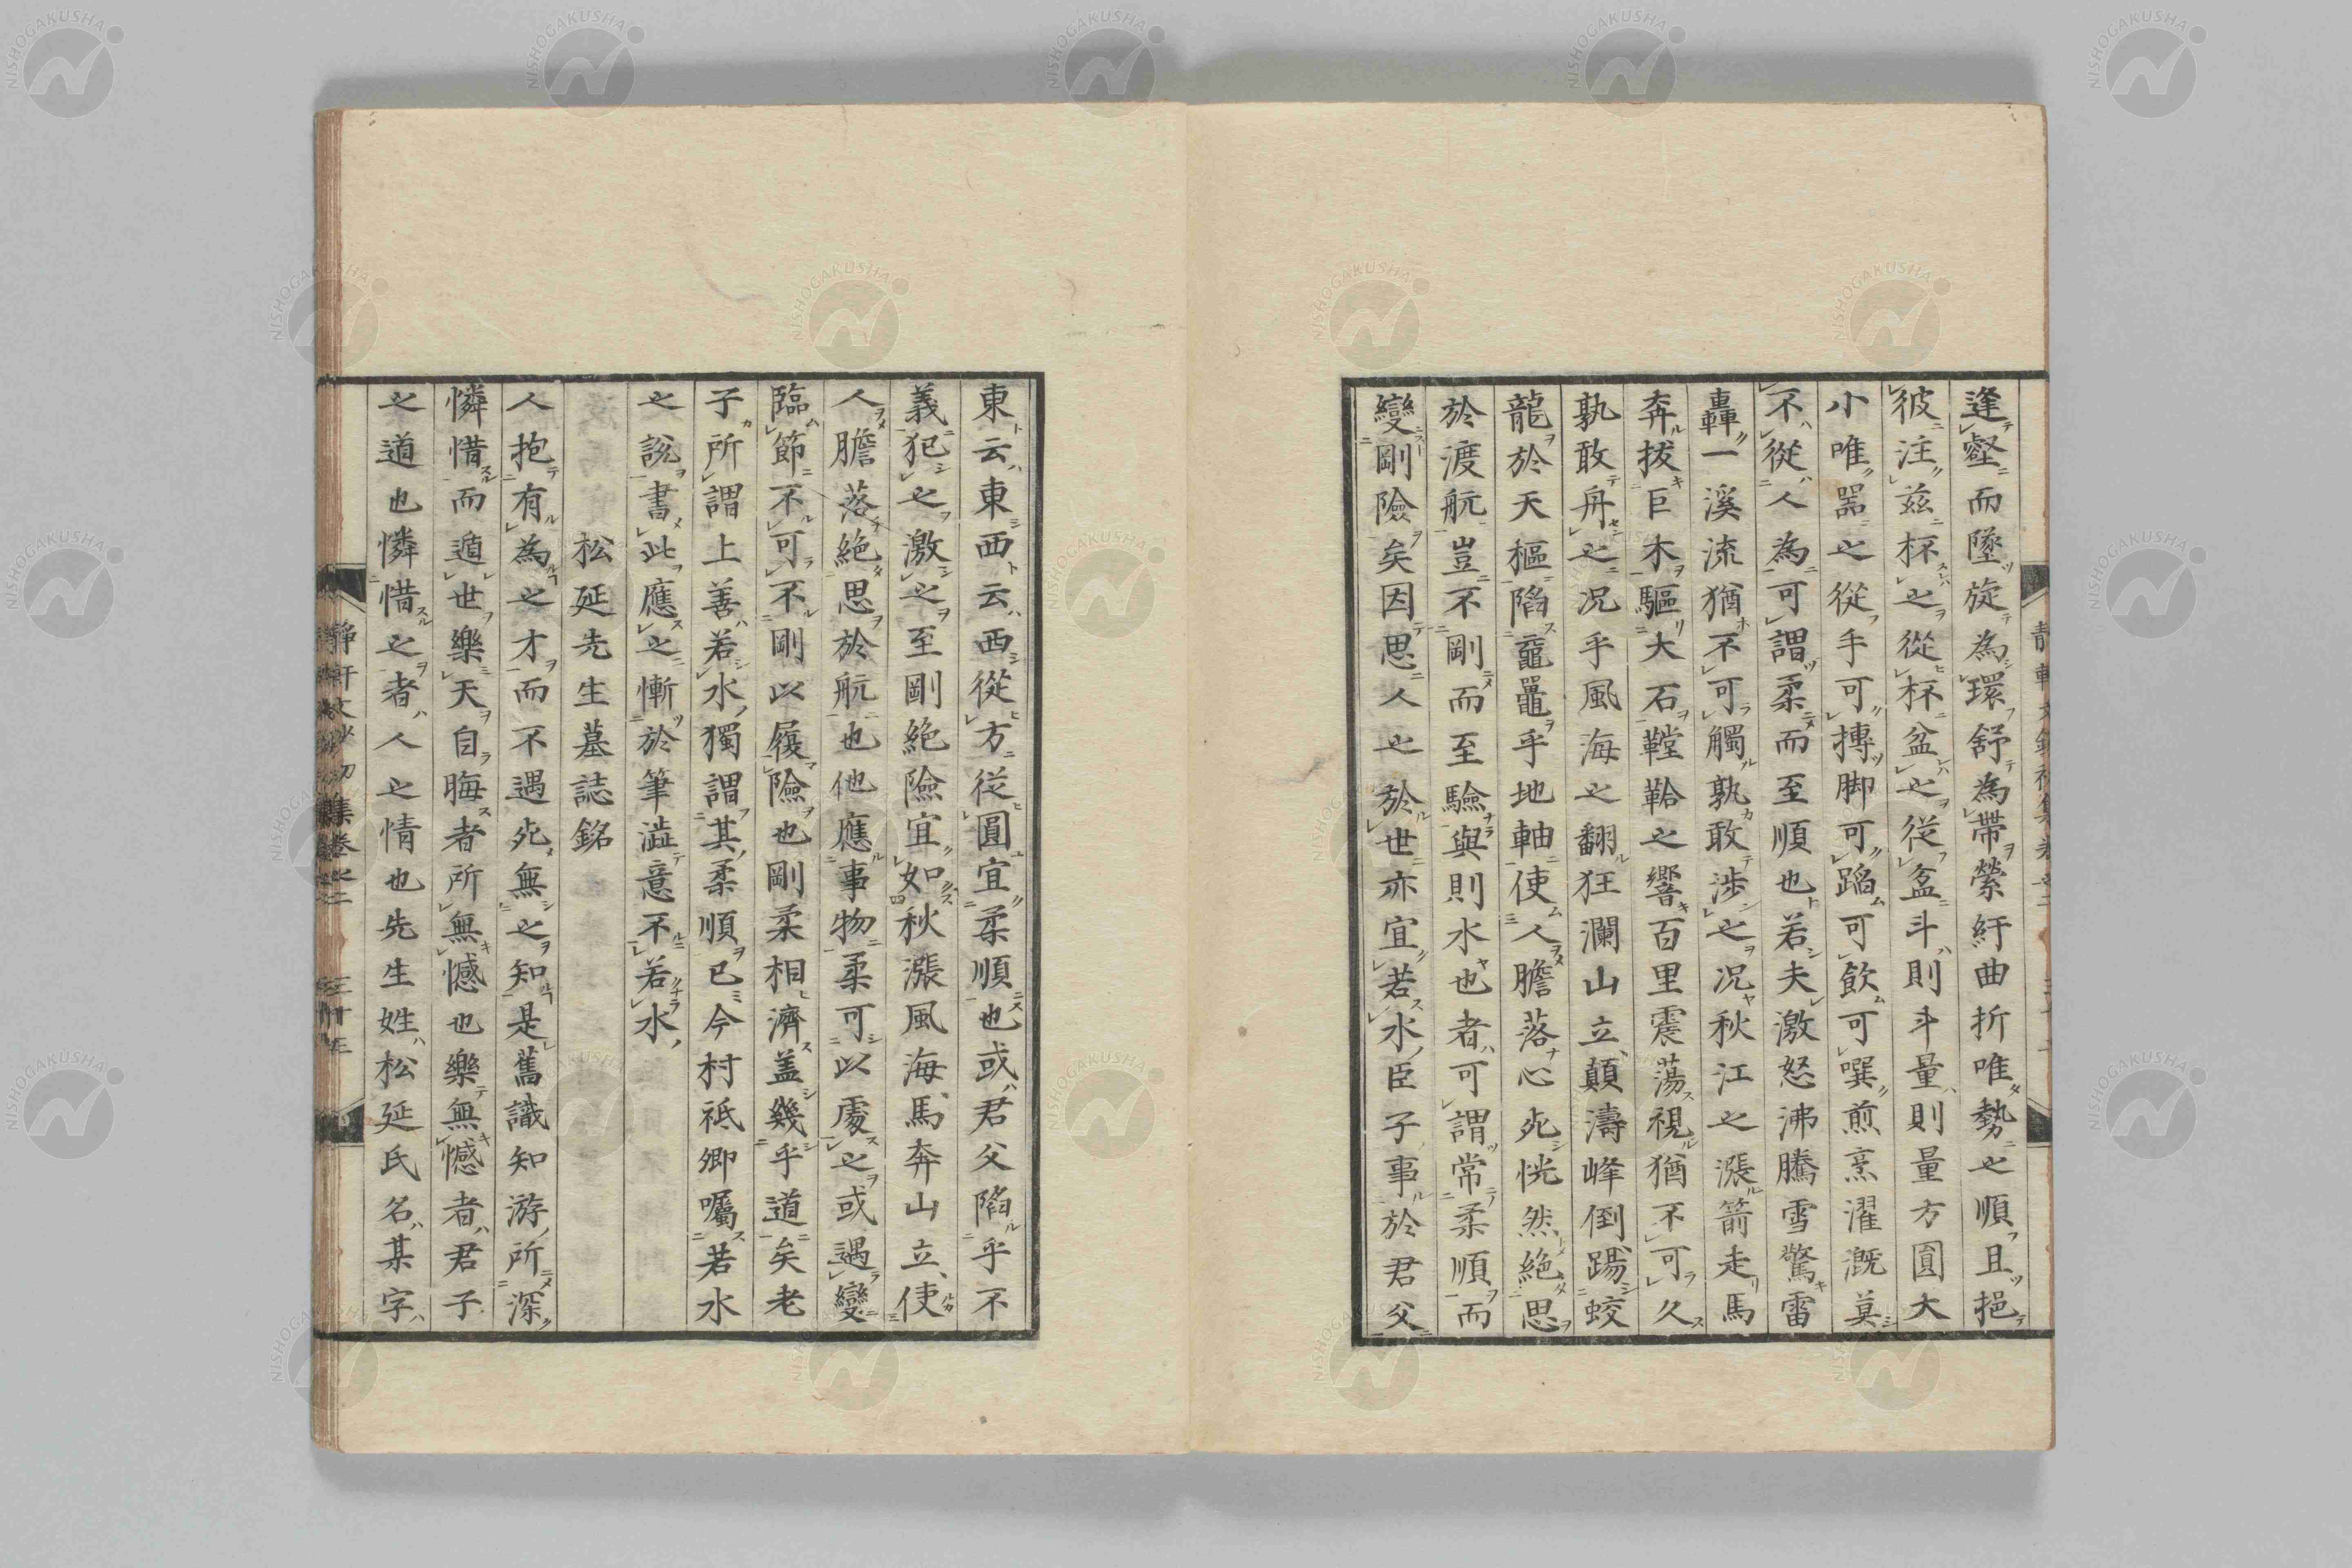 逢壑而墜旋為環舒為帶縈紆曲折唯勢之順且挹
彼注茲杯之從杯盆之從盆斗則斗量則量方圓大
小唯器之從手可摶脚可蹈可飲可噀煎烹濯漑莫
不從人為可謂柔而至順也若夫激怒沸騰雪驚雷
轟一溪流猶不可觸孰敢渉之況秋江之漲箭走馬
奔拔巨木驅大石鞺鞈之響百里震蕩視猶不可久
孰敢舟之況乎風海之翻狂瀾山立顛濤峰倒踢蛟
龍於天樞陷黿鼉乎地軸使人膽落心死恍然絶思
於渡航豈不剛而至驗與則水也者可謂常柔順而
變剛險矣因思人之於世亦宜若水臣子事於君父
東云東西云西從方從圓宜柔順也或君父陷乎不
義犯之激之至剛絶險宜如秋漲風海馬奔山立使
人膽落絶思於航也他應事物柔可以處之或遇變
臨節不可不剛以履險也剛柔相濟盖幾乎道矣老
子所謂上善若水獨謂其柔順已今村祗卿囑若水
之說書此應之慚於筆澁意不若水
松延先生墓誌銘
人抱有為之才而不遇死無之知是舊識知游所深
憐惜而遁世樂天自晦者所無憾也樂無憾者君子
之道也憐惜之者人之情也先生姓松延氏名某字
静軒文鈔初集卷之二 三十三
NISHOGAKUSHA